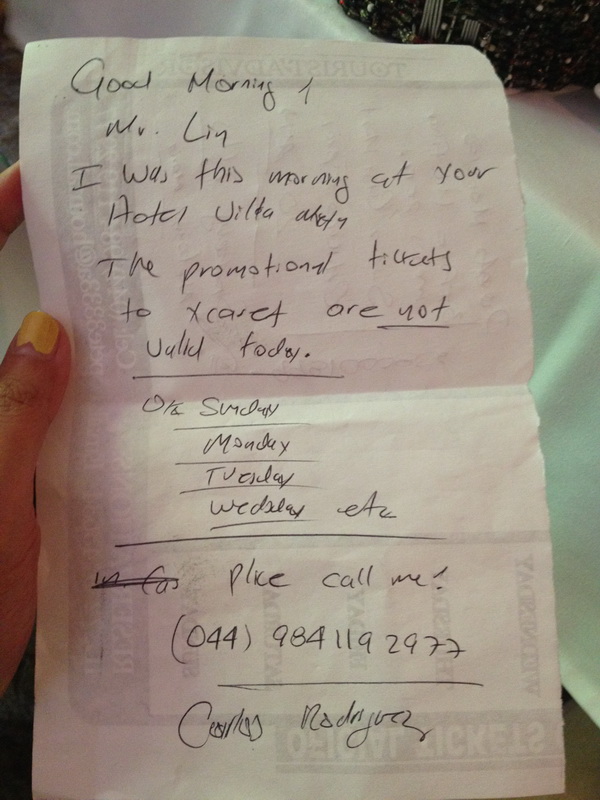 Good Morning!
Mr. Lin
I was this morning at your
Hotel Villa
The promotional tickets
to xcaret are not
valid today.
Ok Sunday
Monday
Tuesday
Wedsday etc
Plice call me!
(044) 984 119 2977
Carlos Rodriguez
TOURIST ADVISOR
WEDNESDAY
OFICIAL TICKETS